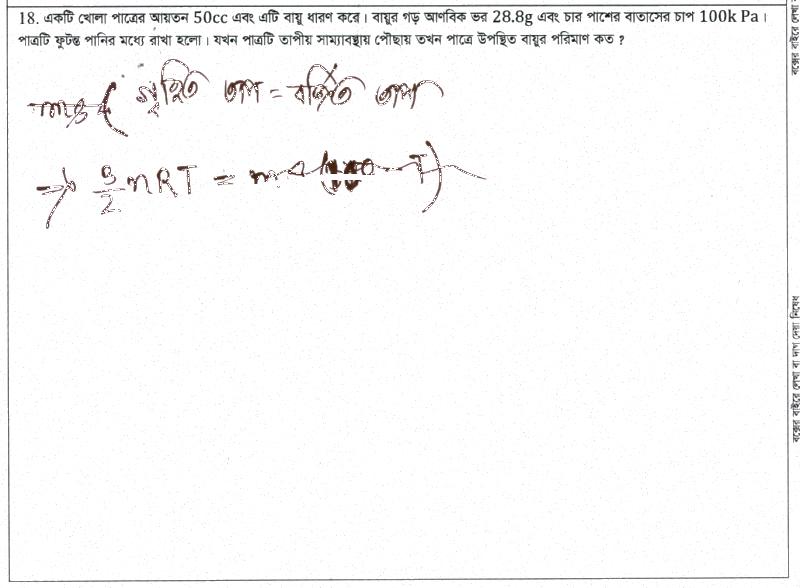 18. একটি খোলা পাত্রের আয়তন 50cc এবং এটি বায়ু ধারণ করে। বায়ুর গড় আণবিক ভর 28.8g এবং চার পাশের বাতাসের চাপ 100k Pa।
পাত্রটি ফুটন্ত পানির মধ্যে রাখা হলো। যখন পাত্রটি তাপীয় সাম্যাবস্থায় পৌছায় তখন পাত্রে উপস্থিত বায়ুর পরিমাণ কত ?
গৃহীত তাপ = বর্জিত তাপ
⇒ 3/2 nRT =
বক্সের বাইরে লেখা
বক্সের বাইরে লেখা বা দাগ দেয়া নিষেধ